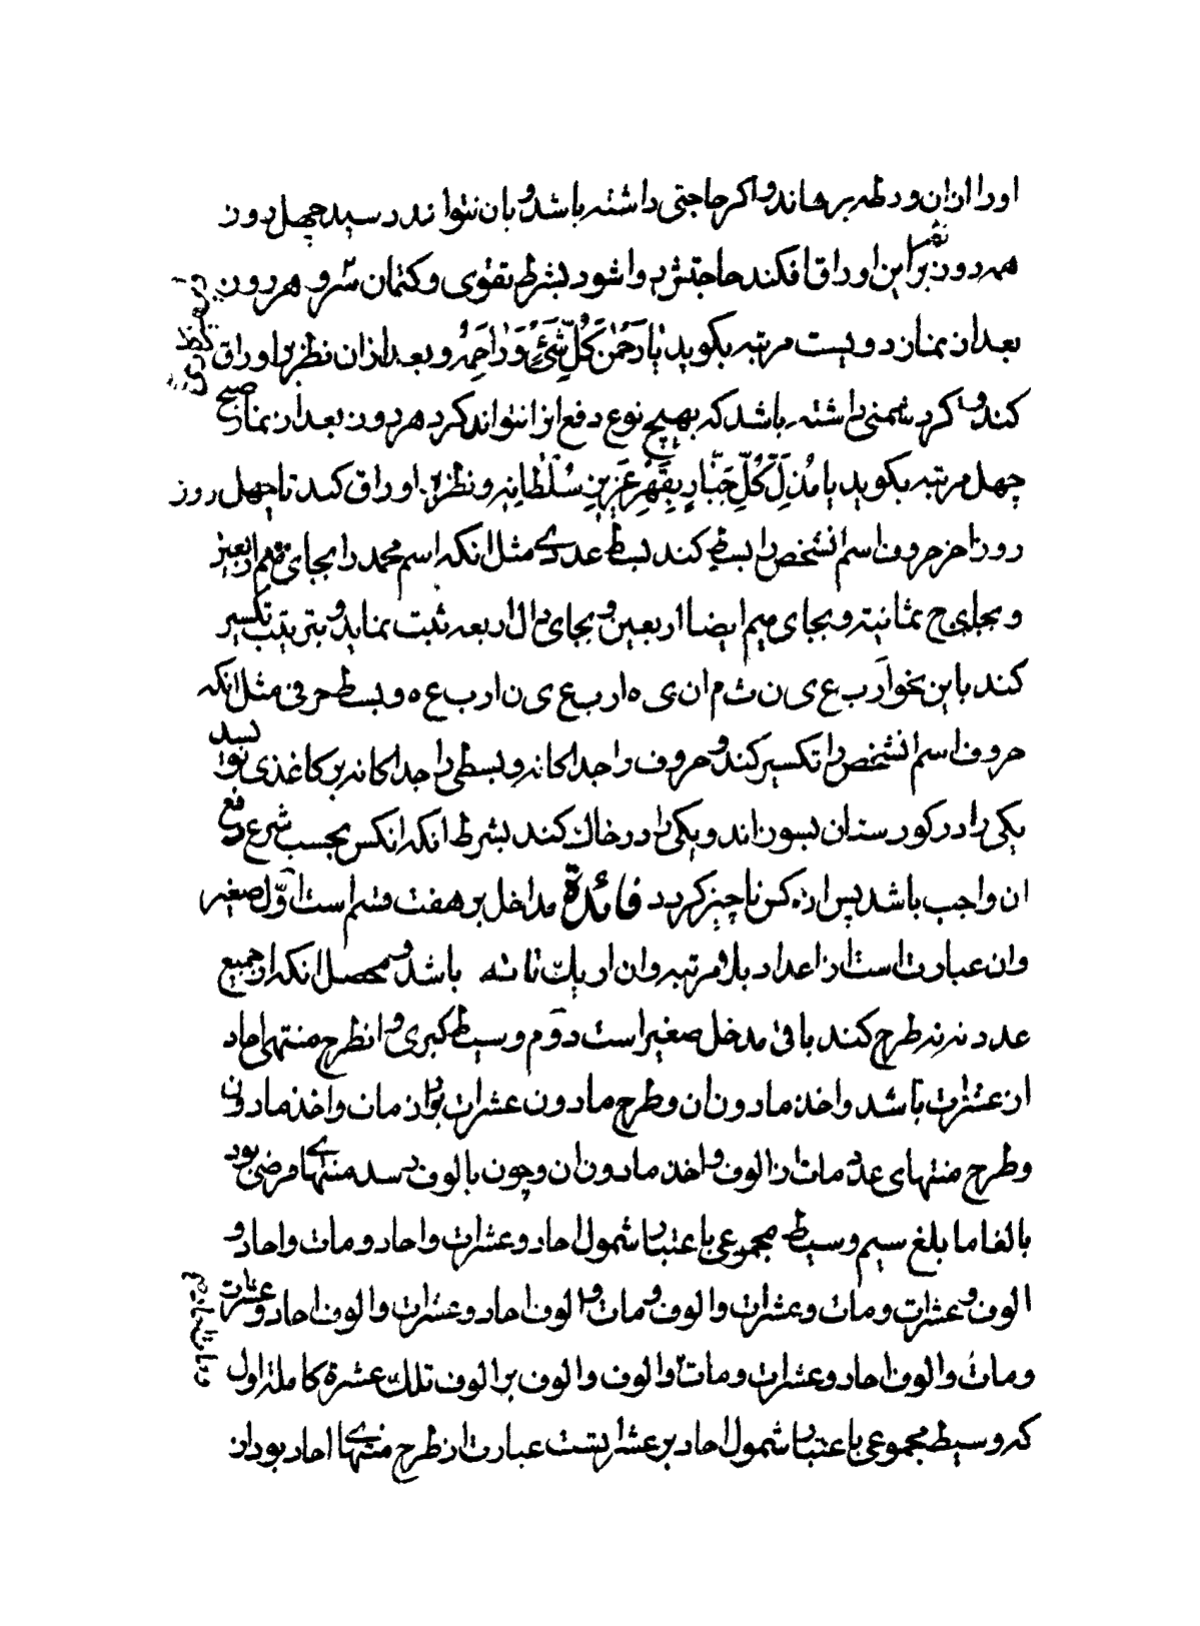 او را ازان ورطه برهاند و اکر حاجتی داشته باشد و بان نتواند رسید چهل روز
هر روز نظر برین اوراق افکند حاجتش روا شود بشرط تقوی و کتمان سرّ و هر روز
بعد از نماز دویست مرتبه بکوید یا رَحمٰنَ کُلِّ شَیْءٍ وَ رٰاحِمَهُ و بعد ازان نظر بر اوراق
کند و اکر دشمنی داشته باشد که بهیچ نوع دفع او نتواند کرد هر روز بعد از نماز صبح
چهل مرتبه بکوید یا مُذِلَّ کُلِّ جَبّٰارٍ بِقَهْرِ عَزیزِ سُلْطٰانِهِ و نظر بر اوراق کند تا چهل روز
روز اخر حروف اسم انشخص را بسط کند بسط عددی مثل انکه اسم محمد را بجای میم اربعین
و بجای ح ثمانیة و بجای میم ایضا اربعین و بجای دال اربعه ثبت نماید و بترتیب تکسیر
کند باین نحو ا ر ب ع ی ن ث م ا ن ی ه ا ر ب ع ی ن ا ر ب ع ه و بسط حرفی مثل انکه
حروف اسم انشخص را تکسیر کند و حروف را جداکانه و بسطی را جداکانه بر کاغذی نویسد
یکی را در کورستان بسوزاند و یکی را در خاک کند بشرط انکه انکس بحسب شرع دفع
ان واجب باشد پس ان کس ناچیز کردد فائدة مداخل بر هفت قسم است اوّل صغیر
وان عبارت است از اعداد بلا مرتبه وان از یک تا نه باشد و محصل انکه از جمیع
عدد نه نه طرح کند باقی مدخل صغیر است دوّم وسیط کبری و ان طرح منتهی احاد
از عشرات باشد و اخذ مادون ان و طرح مادون عشرات بود از مات و اخذ مادون
و طرح منتهای عدد مات از الوف و اخذ مادون ان و چون بالوف رسد منتهای فرضی بود
بالغا ما بلغ سیم وسیط مجموعی باعتبار شمول احاد و عشرات و احاد و مات و احاد و
الوف و عشرات و مات و عشرات و الوف و مات و الوف احاد و عشرات و الوف احاد و عشرات
و مات و الوف احاد و عشرات و مات و الوف و الوف بر الوف تلک عشرة کاملة اول
که وسیط مجموعی باعتبار شمول احاد بر عشراتست عبارت از طرح منتهای احاد بود از